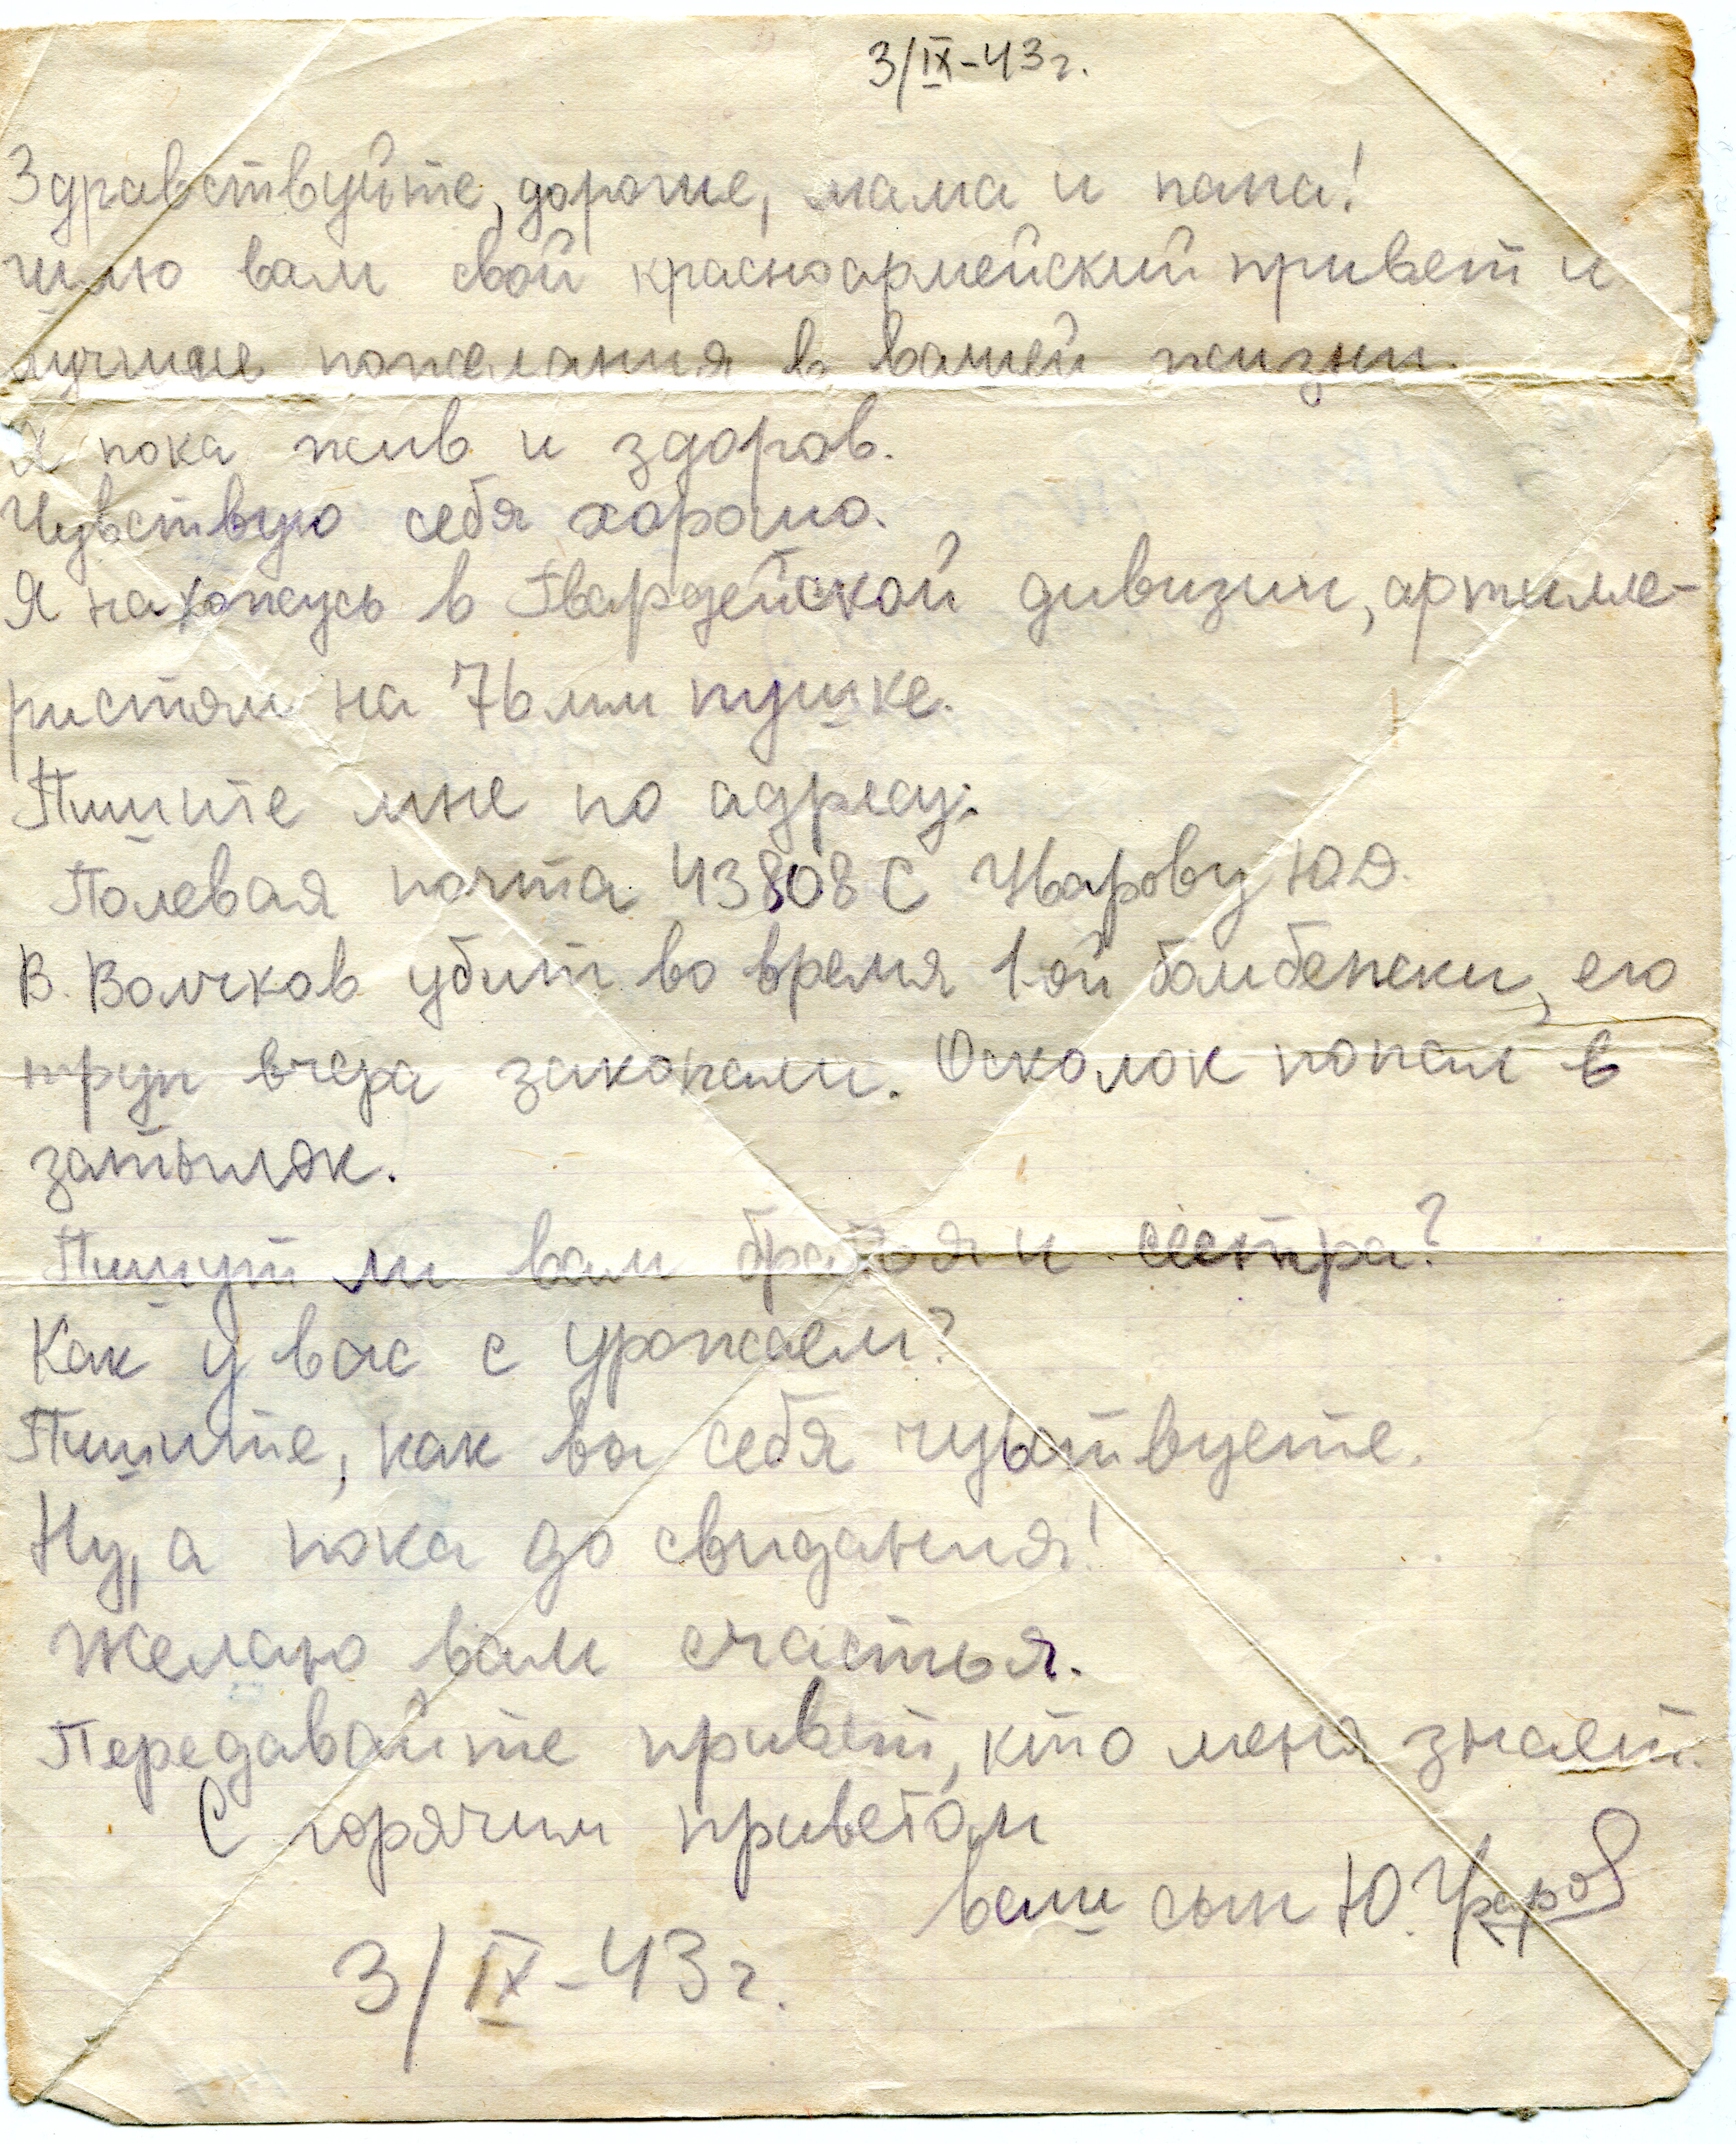 3/IX-43г.
Здравствуйте, дорогие, мама и папа!
шлю вам свой красноармейский привет и
лучшие пожелания в вашей жизни.
Я пока жив и здоров.
Чувствую себя хорошо.
Я нахожусь в Гвардейской дивизии, артилле-
ристом на 76 мм пушке.
Пишите мне по адресу:
Полевая почта 43808 С Ю.Д.
В. Волчков убит во время 1-ой бомбежки, его
труп вчера закопали. Осколок попал в
затылок.
Пишут ли вам братья и сестра?
Как у вас с урожаем?
Пишите, как вы себя чувствуете.
Ну, а пока до свидания!
Желаю вам счастья.
Передавайте привет, кто меня знает.
С горячим приветом
ваш сын Ю.
3/IX-43г.